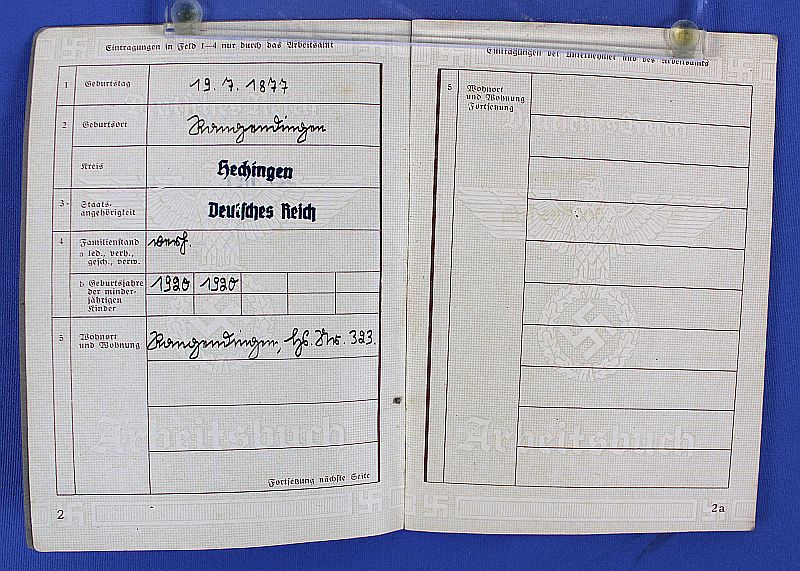 Eintragungen in Feld 1—4 nur durch das Arbeitsamt
1 Geburtstag 19. 7. 1877
2 Geburtsort Rangendingen
Kreis Hechingen
3 Staats-
angehörigkeit Deutsches Reich
4 Familienstand verh.
a led., verh.,
gesch., verw.
b Geburtsjahre 1920 1920
der minder-
jährigen
Kinder
5 Wohnort
und Wohnung Rangendingen, Hs. Nr. 323.
Arbeitsbuch
Fortsetzung nächste Seite
2
Eintragungen des Unternehmers und des Arbeitsamts
5 Wohnort
und Wohnung
Fortsetzung
Deutsches Reich
Arbeitsbuch
2a